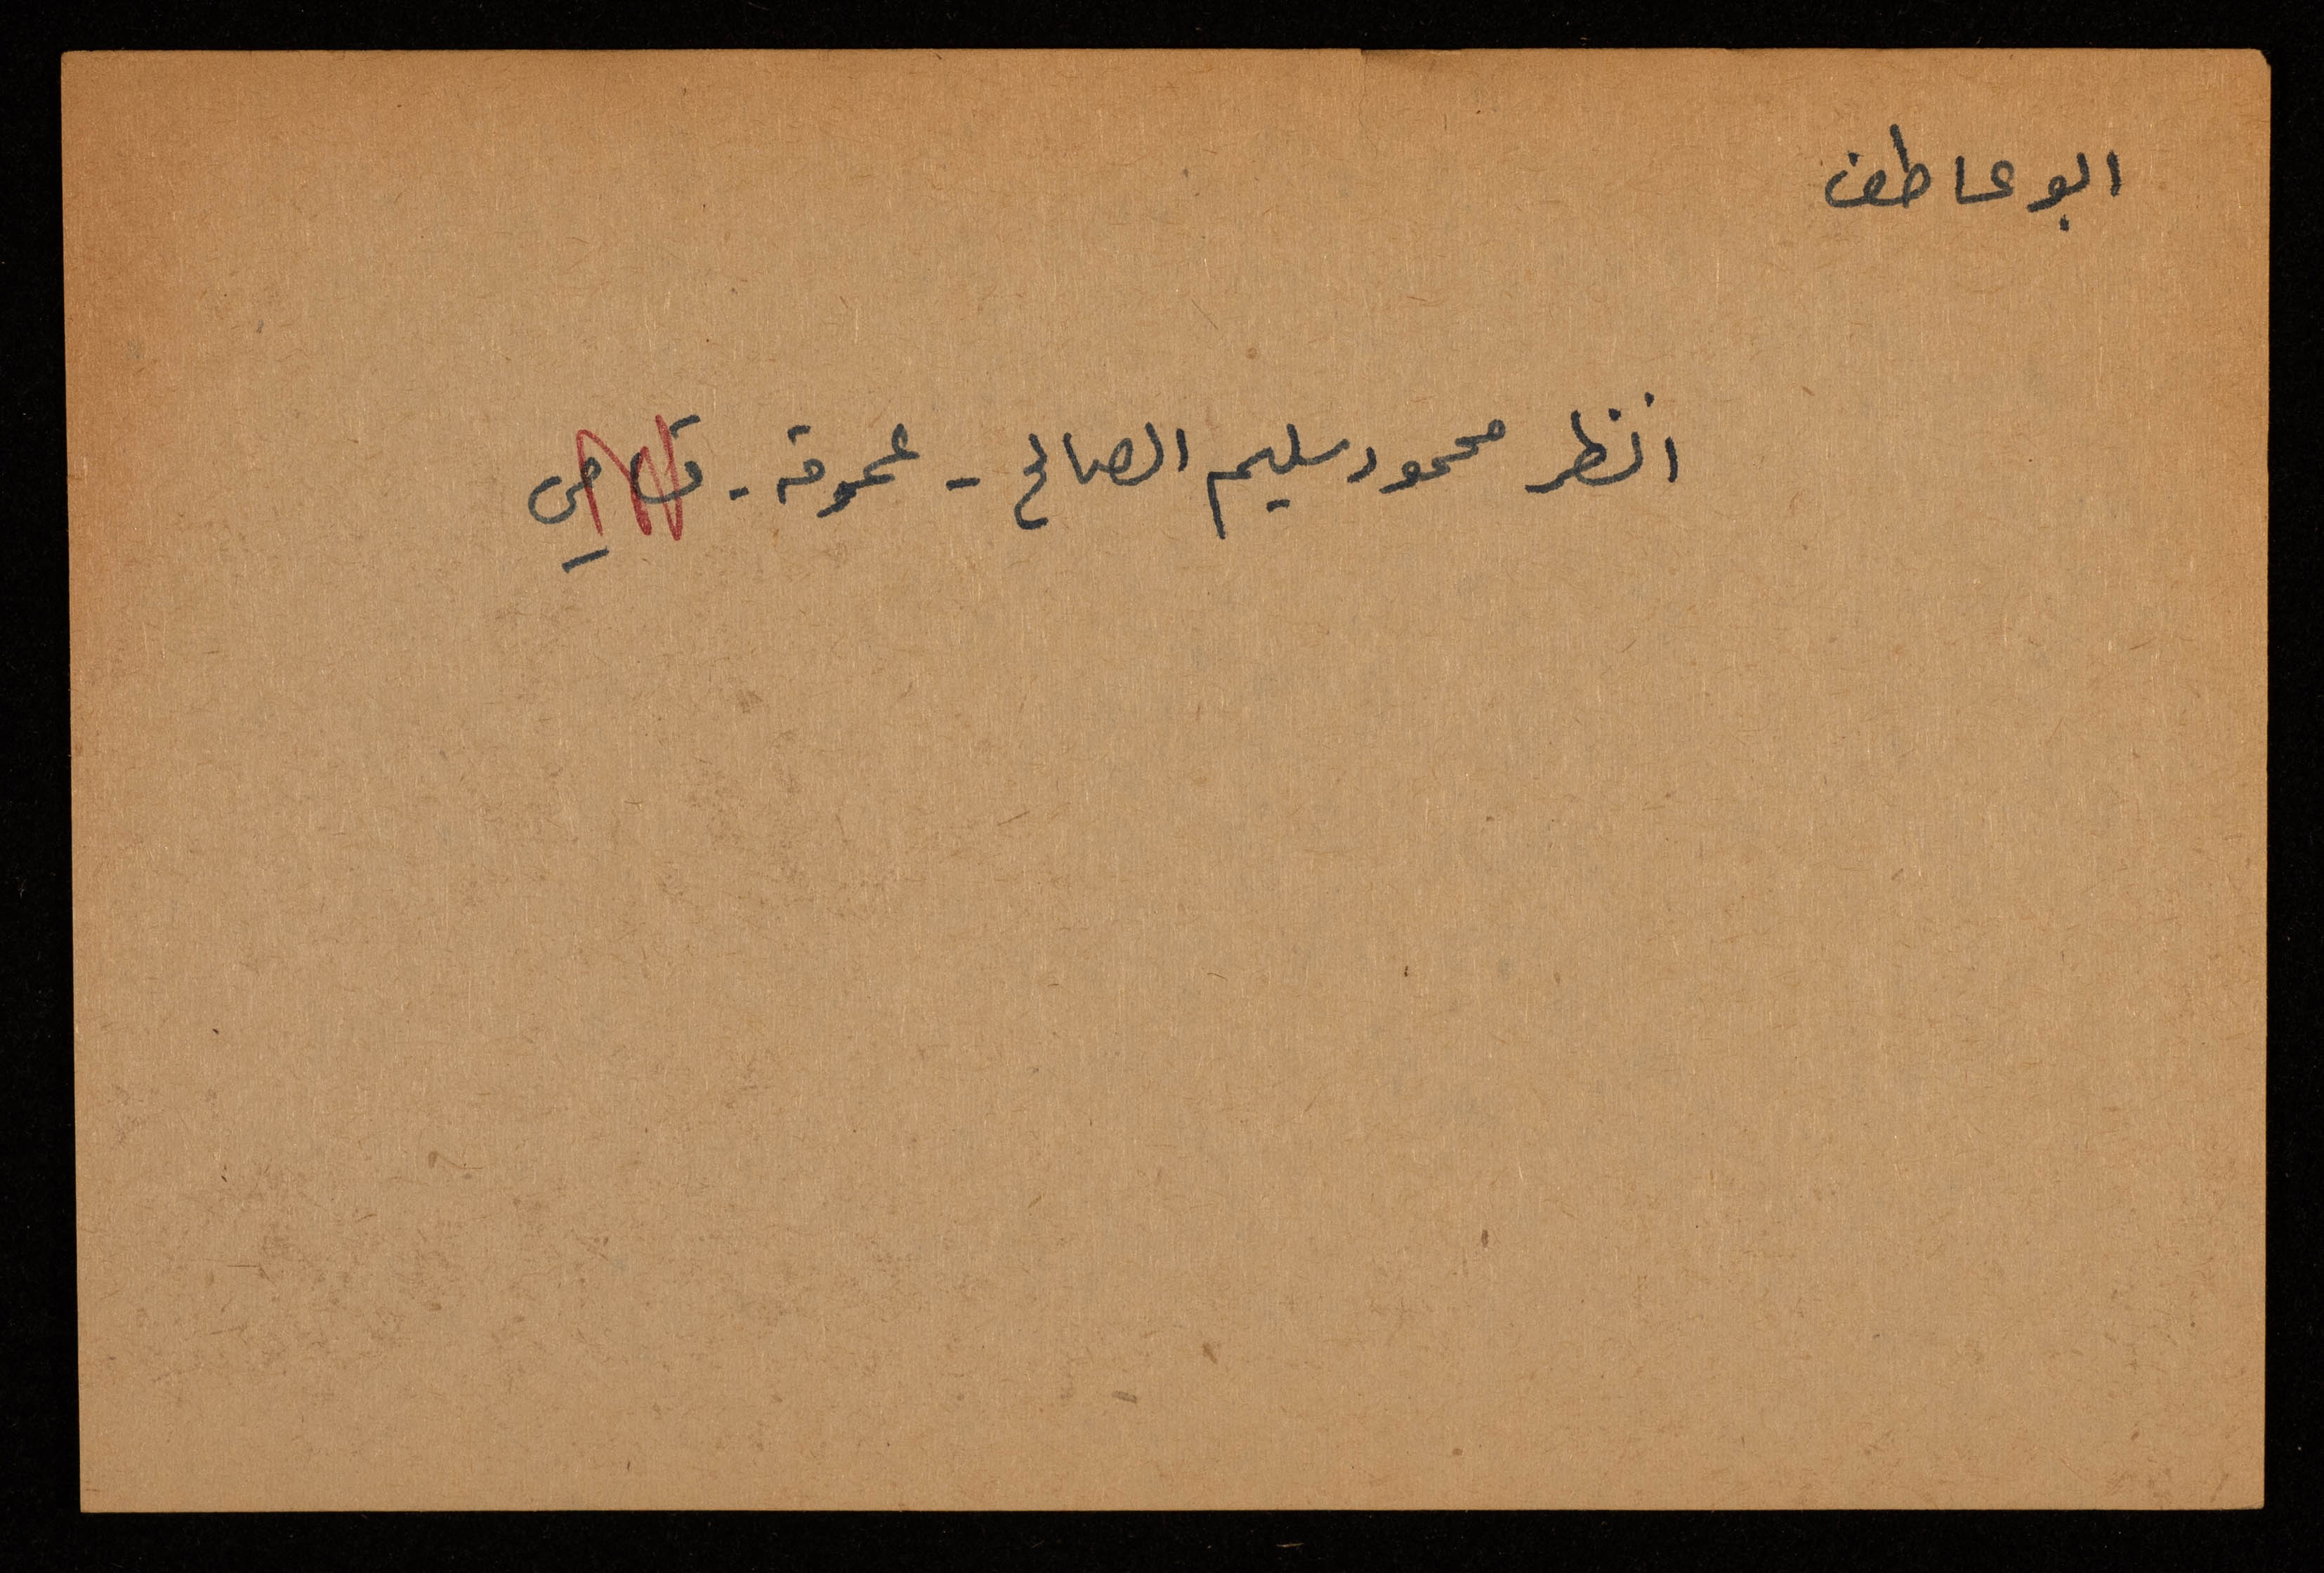 ابو عاطف
انظر محمود سليم الصالح - عموقة -